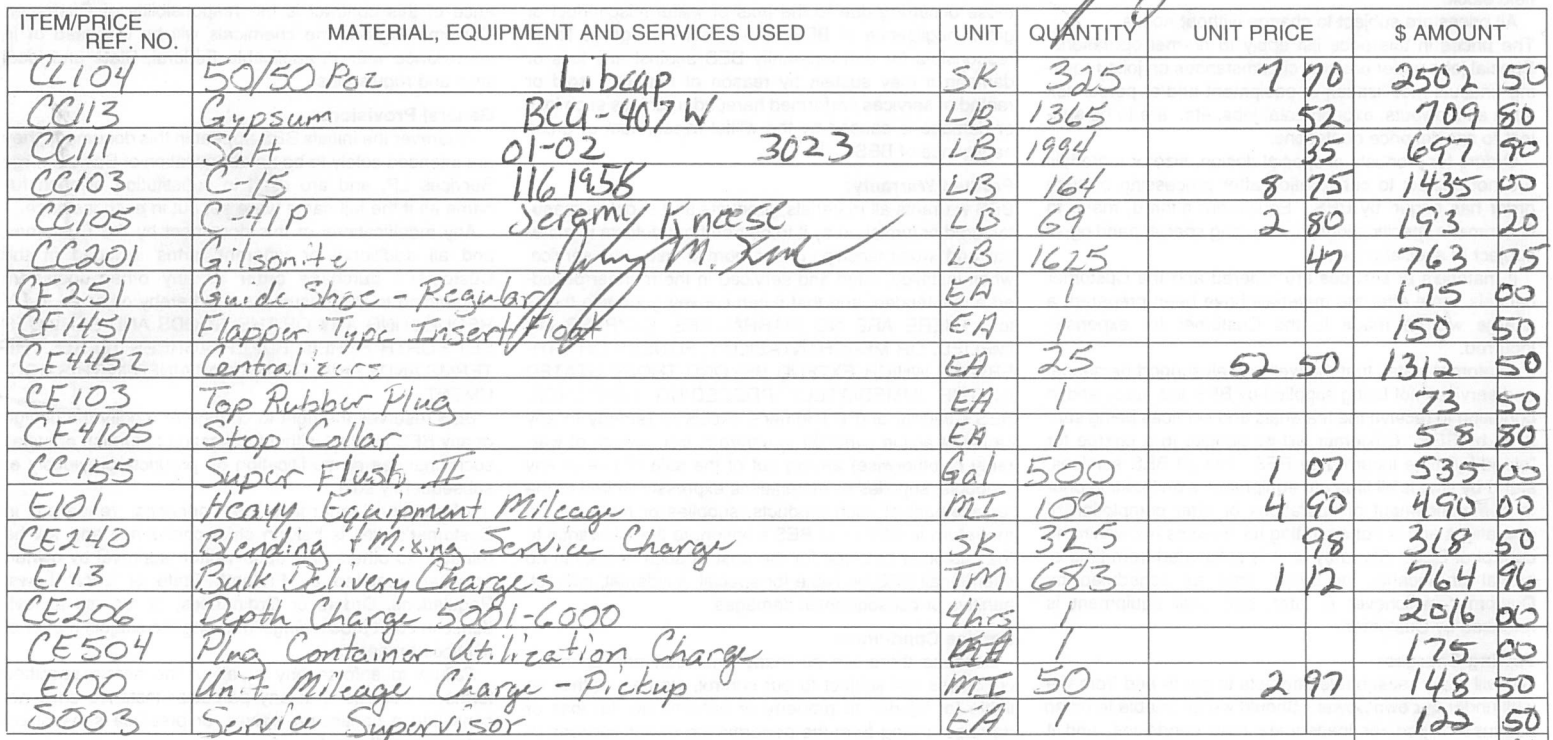 ITEM/PRICE REF. NO. MATERIAL, EQUIPMENT AND SERVICES USED UNIT QUANTITY UNIT PRICE $ AMOUNT
CL104 50/50 Poz Libcap SK 325 7 70 2502 50
CC113 Gypsum BCU-407W LB 1365 52 709 80
CC111 Salt 01-02 3023 LB 1994 35 697 90
CC103 C-15 LB 164 8 75 1435 00
CC105 C-41P Jeremy Kneese LB 69 2 80 193 20
CC201 Gilsonite LB 1625 47 763 75
CF251 Guide Shoe - Regular EA 1 175 00
CF1451 Flapper Type Insert Float EA 1 150 50
CF4452 Centralizers EA 25 52 50 1312 50
CF103 Top Rubber Plug EA 1 73 50
CF4105 Stop Collar EA 1 58 80
CC155 Super Flush II Gal 500 1 07 535 00
E101 Heavy Equipment Mileage MI 100 4 90 490 00
CE240 Blending & Mixing Service Charge SK 325 98 318 50
E113 Bulk Delivery Charges TM 683 1 12 764 96
CE206 Depth Charge 5001-6000 4hrs 1 2016 00
CE504 Plug Container Utilization Charge 1 175 00
E100 Unit Mileage Charge - Pickup MI 50 2 97 148 50
S003 Service Supervisor EA 1 122 50